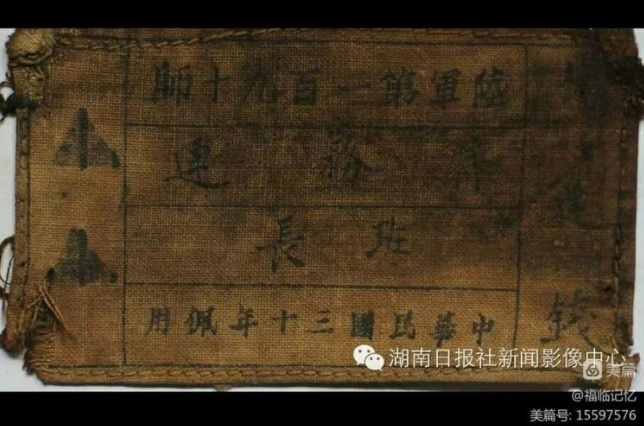 錢
陸軍第一百九十師
務連
班長
中華民國三十年佩用
湖南日报社新闻影像中心
美篇
@福临记忆
美篇号: 15597576